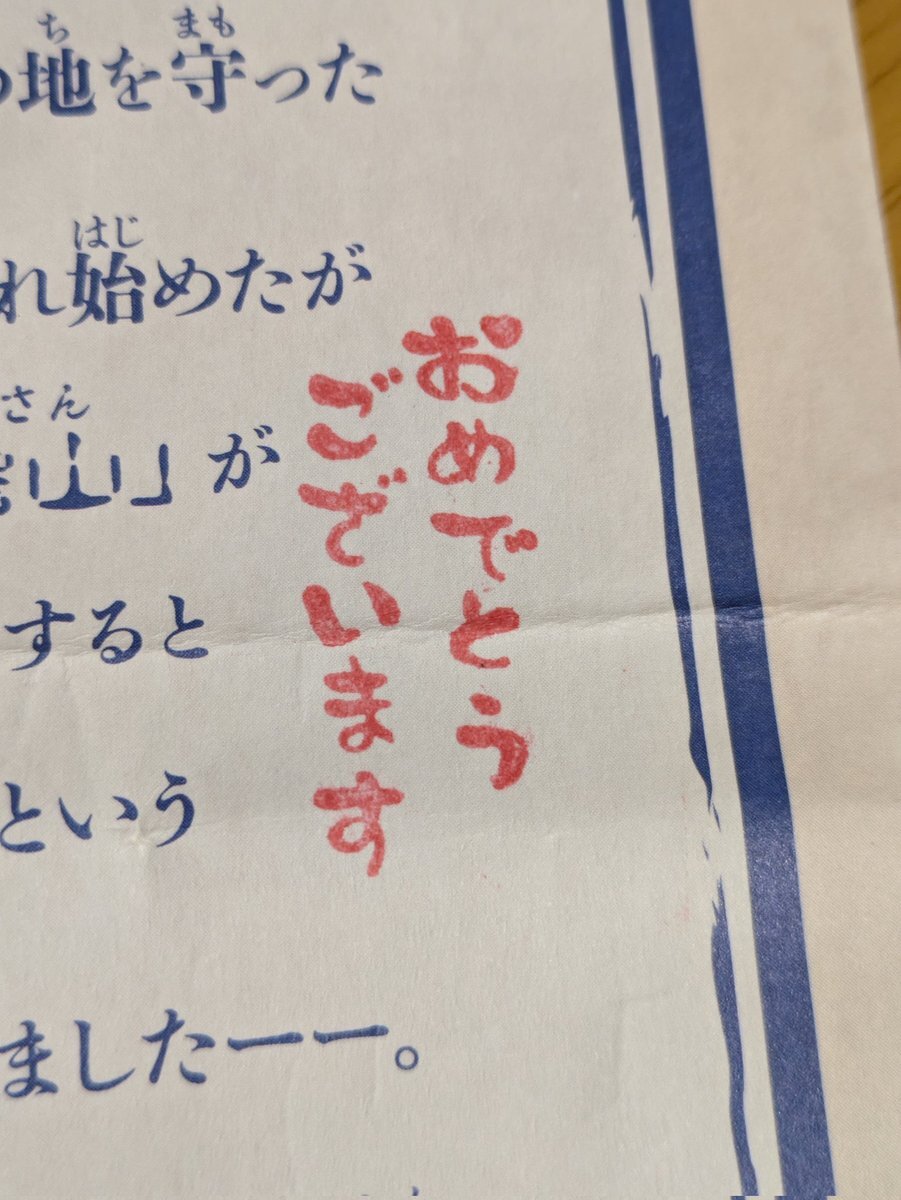 ち まも
地を守った
はじ
れ始めたが
さん
山」が
おめでとう
ございます
すると
という
ました――。